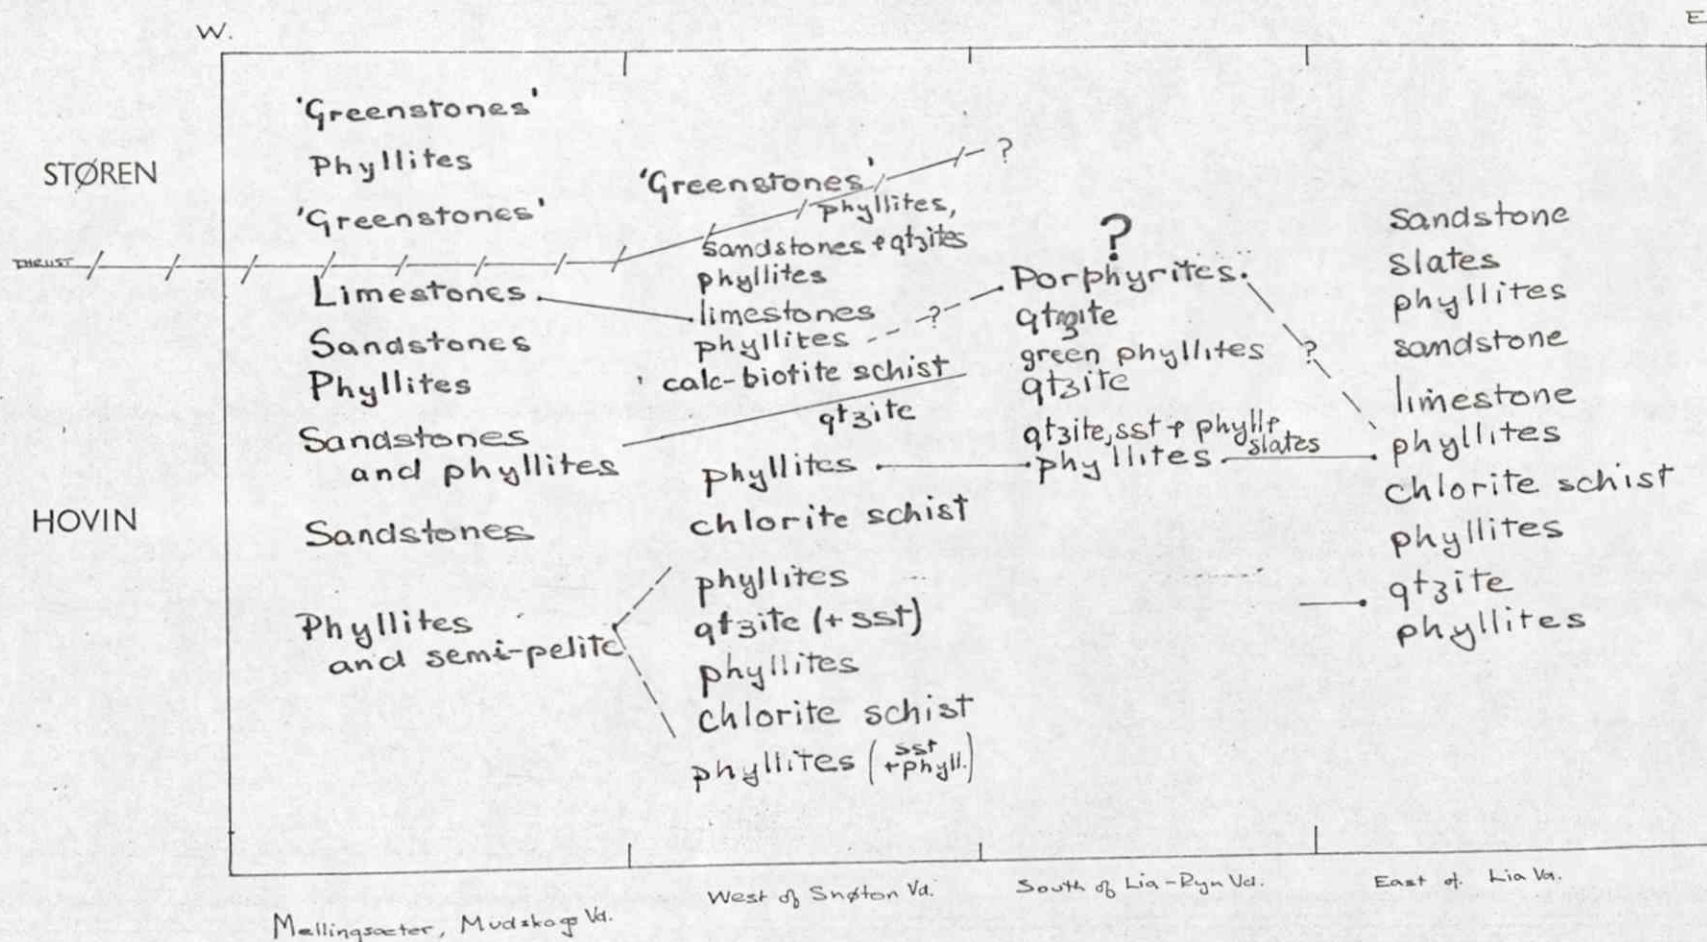 W.
E
STØREN
THRUST
HOVIN
'Greenstones'
Phyllites
'Greenstones'
Limestones
Sandstones
Phyllites
Sandstones
and phyllites
Sandstones
Phyllites
and semi-pelite
'Greenstones'
?
phyllites,
sandstones + qtzites
phyllites
limestones
phyllites
?
calc-biotite schist
qtzite
phyllites
chlorite schist
phyllites
qtzite (+ sst)
phyllites
chlorite schist
phyllites (sst
+phyll.)
?
Porphyrites.
qtzite
green phyllites
?
qtzite
qtzite, sst + phyll +
slates
phyllites
Sandstone
slates
phyllites
sandstone
limestone
phyllites
chlorite schist
phyllites
qtzite
phyllites
Mellingsaeter, Mudskogs Vd.
West of Snøton Vd.
South of Lia-Ryn Vd.
East of. Lia Vd.